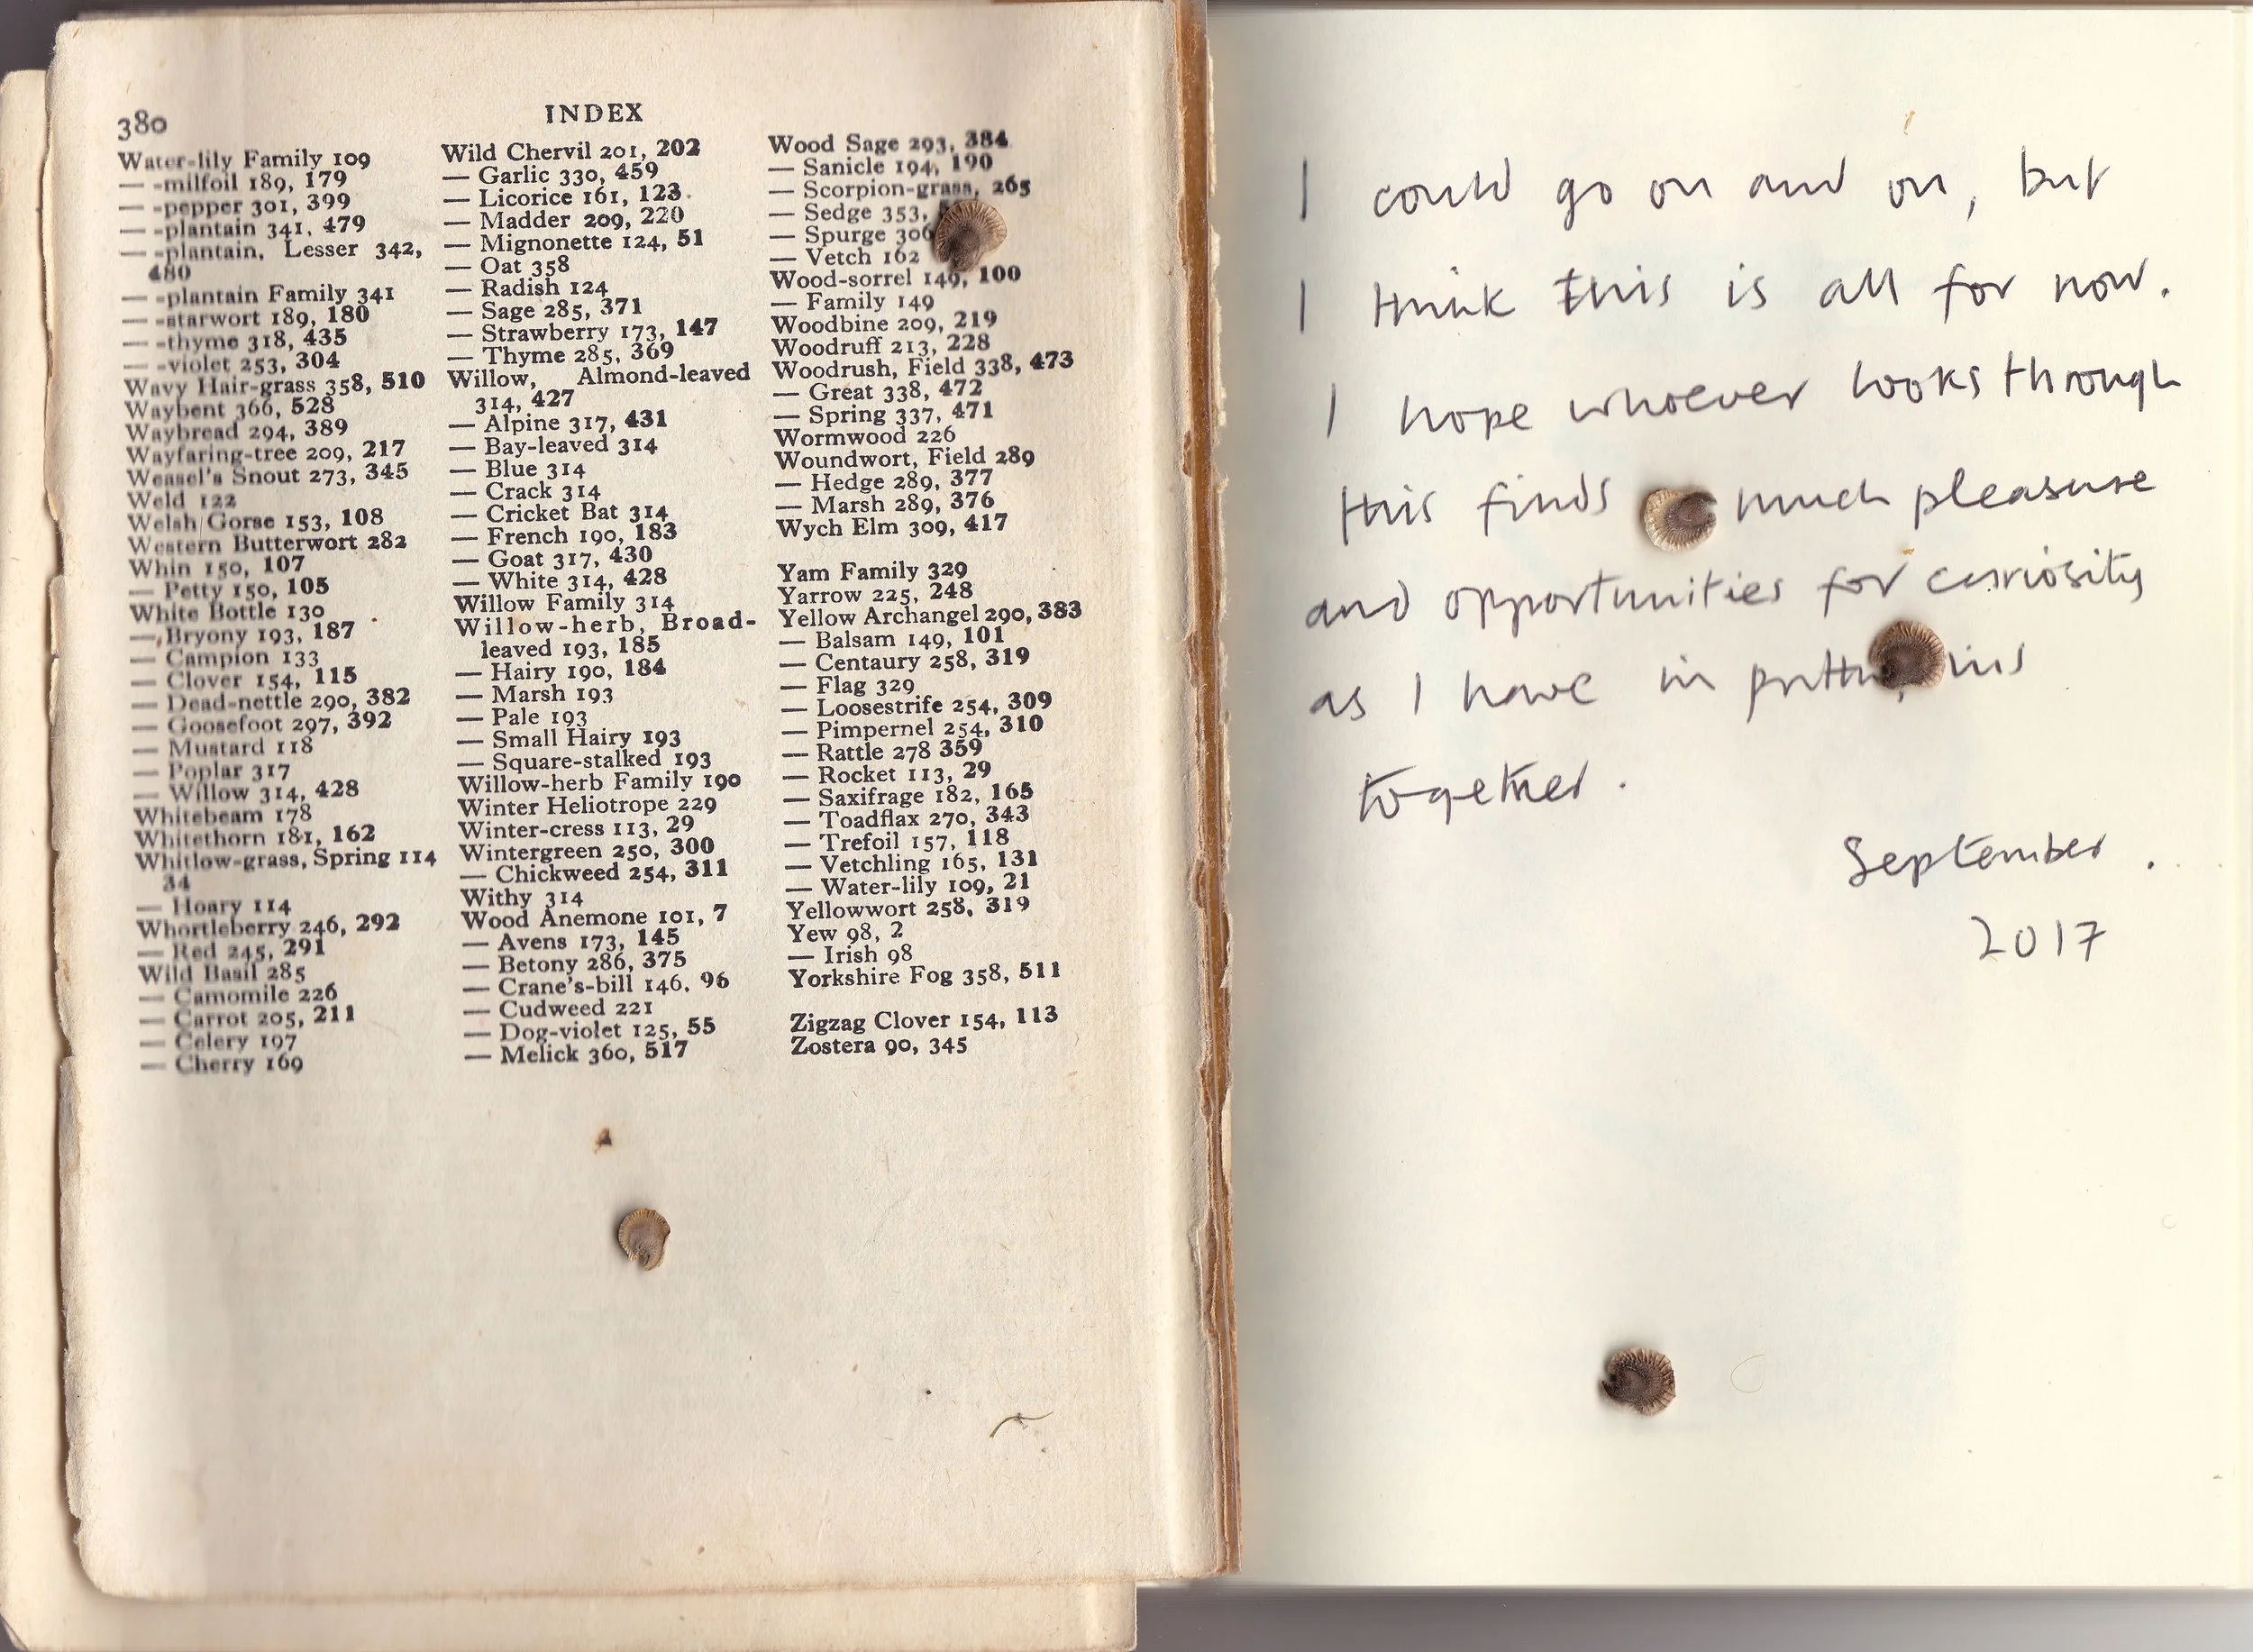 380
INDEX
Water-lily Family 109
— -milfoil 189, 179
— -pepper 301, 399
— -plantain 341, 479
— -plantain, Lesser 342,
480
— -plantain Family 341
— -starwort 189, 180
— -thyme 318, 435
— -violet 253, 304
Wavy Hair-grass 358, 510
Waybent 366, 528
Waybread 294, 389
Wayfaring-tree 209, 217
Weasel's Snout 273, 345
Weld 122
Welsh Gorse 153, 108
Western Butterwort 282
Whin 150, 107
— Petty 150, 105
White Bottle 130
— Bryony 193, 187
— Campion 133
— Clover 154, 115
— Dead-nettle 290, 382
— Goosefoot 297, 392
— Mustard 118
— Poplar 317
— Willow 314, 428
Whitebeam 178
Whitethorn 181, 162
Whitlow-grass, Spring 114
34
— Hoary 114
Whortleberry 246, 292
— Red 245, 291
Wild Basil 285
— Camomile 226
— Carrot 205, 211
— Celery 197
— Cherry 169
Wild Chervil 201, 202
— Garlic 330, 459
— Licorice 161, 123
— Madder 209, 220
— Mignonette 124, 51
— Oat 358
— Radish 124
— Sage 285, 371
— Strawberry 173, 147
— Thyme 285, 369
Willow, Almond-leaved
314, 427
— Alpine 317, 431
— Bay-leaved 314
— Blue 314
— Crack 314
— Cricket Bat 314
— French 190, 183
— Goat 317, 430
— White 314, 428
Willow Family 314
Willow-herb, Broad-
leaved 193, 185
— Hairy 190, 184
— Marsh 193
— Pale 193
— Small Hairy 193
— Square-stalked 193
Willow-herb Family 190
Winter Heliotrope 229
Winter-cress 113, 29
Wintergreen 250, 300
— Chickweed 254, 311
Withy 314
Wood Anemone 101, 7
— Avens 173, 145
— Betony 286, 375
— Crane's-bill 146, 96
— Cudweed 221
— Dog-violet 125, 55
— Melick 360, 517
Wood Sage 293, 384
— Sanicle 194, 190
— Scorpion-grass, 265
— Sedge 353,
— Spurge 306
— Vetch 162
Wood-sorrel 149, 100
— Family 149
Woodbine 209, 219
Woodruff 213, 228
Woodrush, Field 338, 473
— Great 338, 472
— Spring 337, 471
Wormwood 226
Woundwort, Field 289
— Hedge 289, 377
— Marsh 289, 376
Wych Elm 309, 417
Yam Family 329
Yarrow 225, 248
Yellow Archangel 290, 383
— Balsam 149, 101
— Centaury 258, 319
— Flag 329
— Loosestrife 254, 309
— Pimpernel 254, 310
— Rattle 278 359
— Rocket 113, 29
— Saxifrage 182, 165
— Toadflax 270, 343
— Trefoil 157, 118
— Vetchling 165, 131
— Water-lily 109, 21
Yellowwort 258, 319
Yew 98, 2
— Irish 98
Yorkshire Fog 358, 511
Zigzag Clover 154, 113
Zostera 90, 345
I could go on and on, but
I think this is all for now.
I hope whoever looks through
this finds much pleasure
and opportunities for curiosity
as I have in
together.
September.
2017